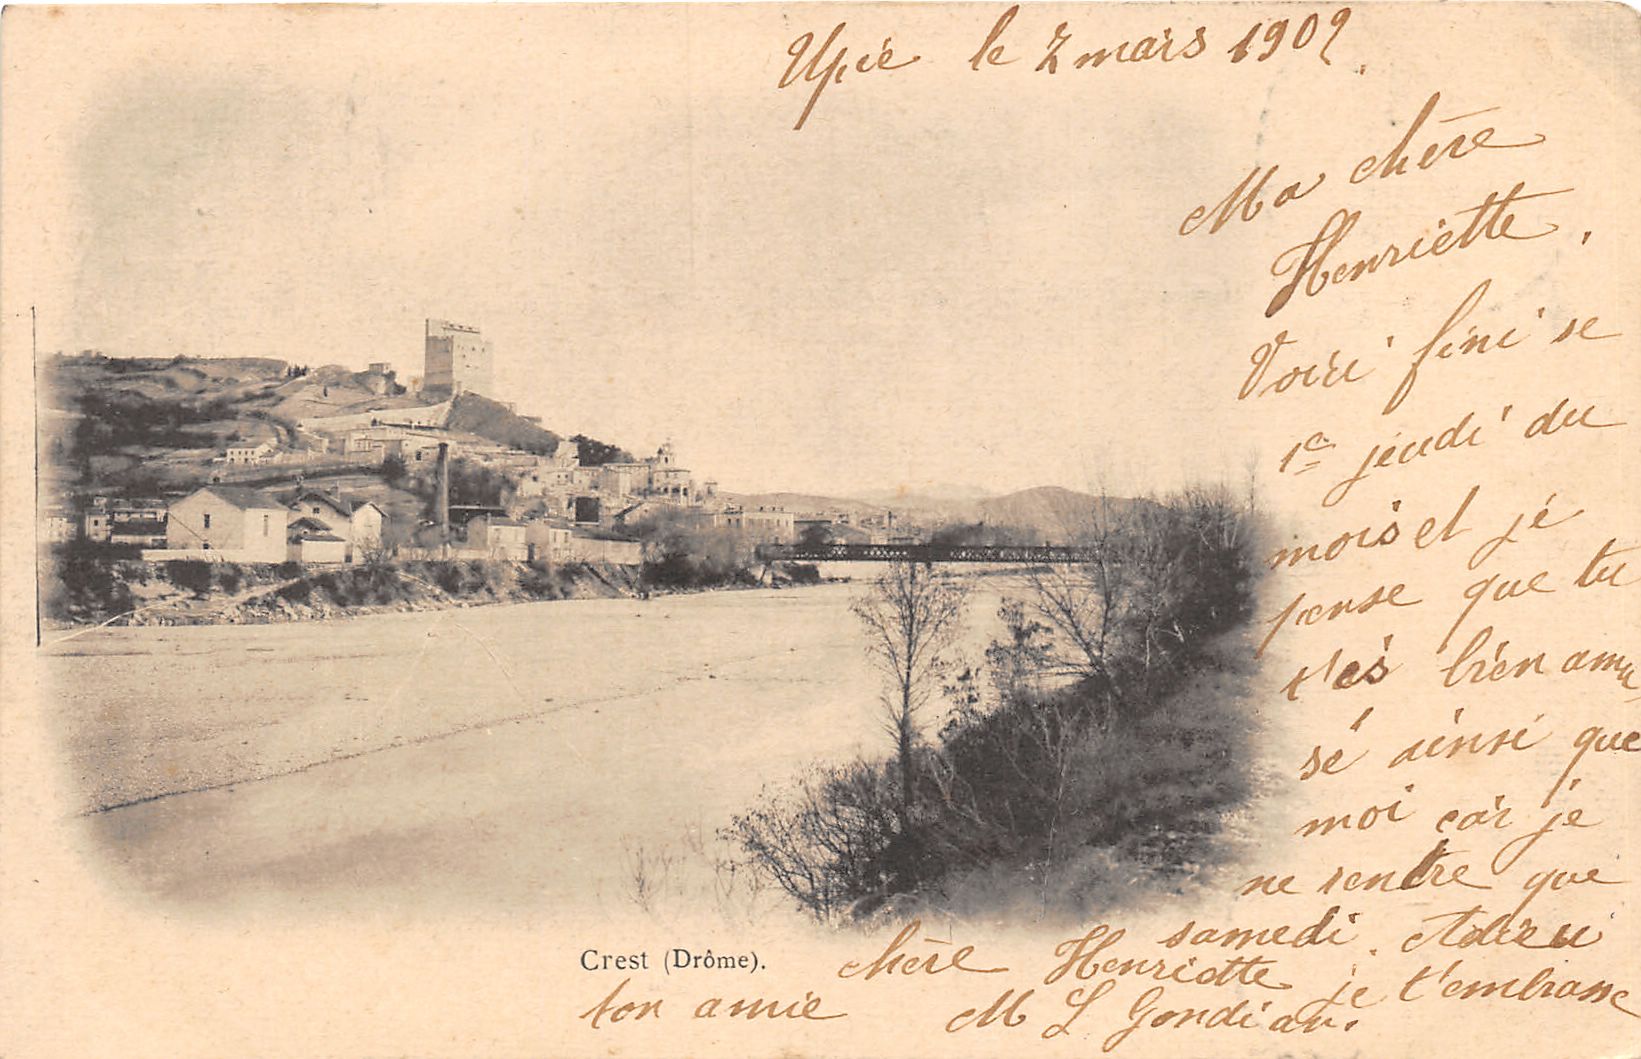 Upie le 2 mars 1902.
Ma chère
Henriette,
Voici fini se
1er jeudi du
mois et jé
pense que tu
t'es bien amu
sé ainsi que
moi car je
ne rentre que
samedi. Adieu
chère Henriette je t'embrasse
ton amie M L Gondian.
Crest (Drôme).